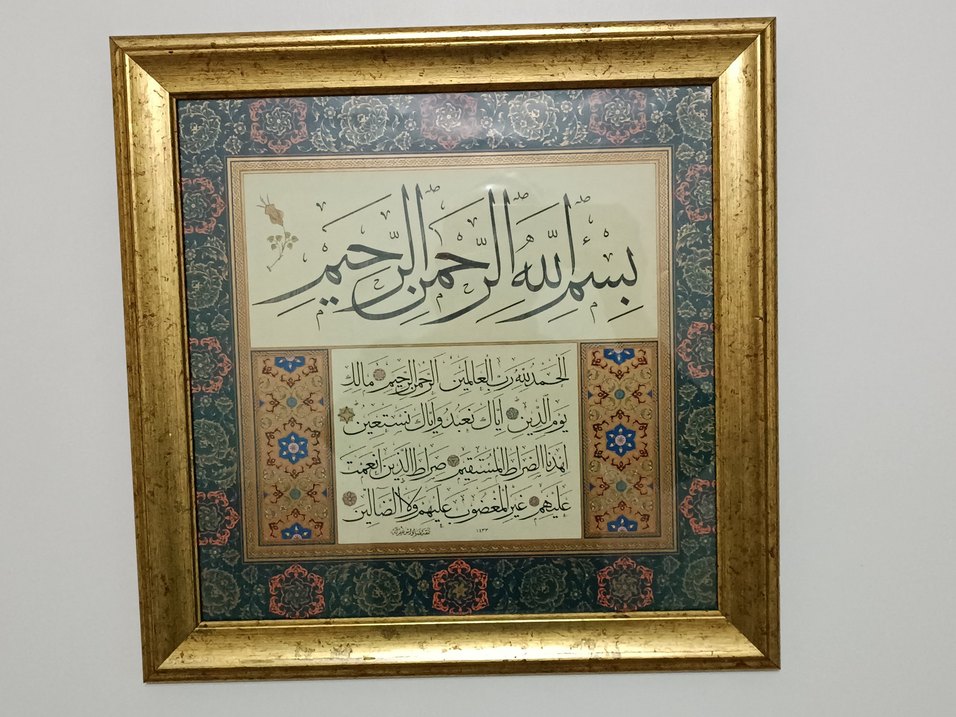 بِسْمِ اللَّهِ الرَّحْمٰنِ الرَّحِيمِ
الحمد لله رب العالمين الرحمن الرحيم مالك
يوم الدين اياك نعبد واياك نستعين
اهدنا الصراط المستقيم صراط الذين انعمت
عليهم غير المغضوب عليهم ولا الضالين
١٤٣٣